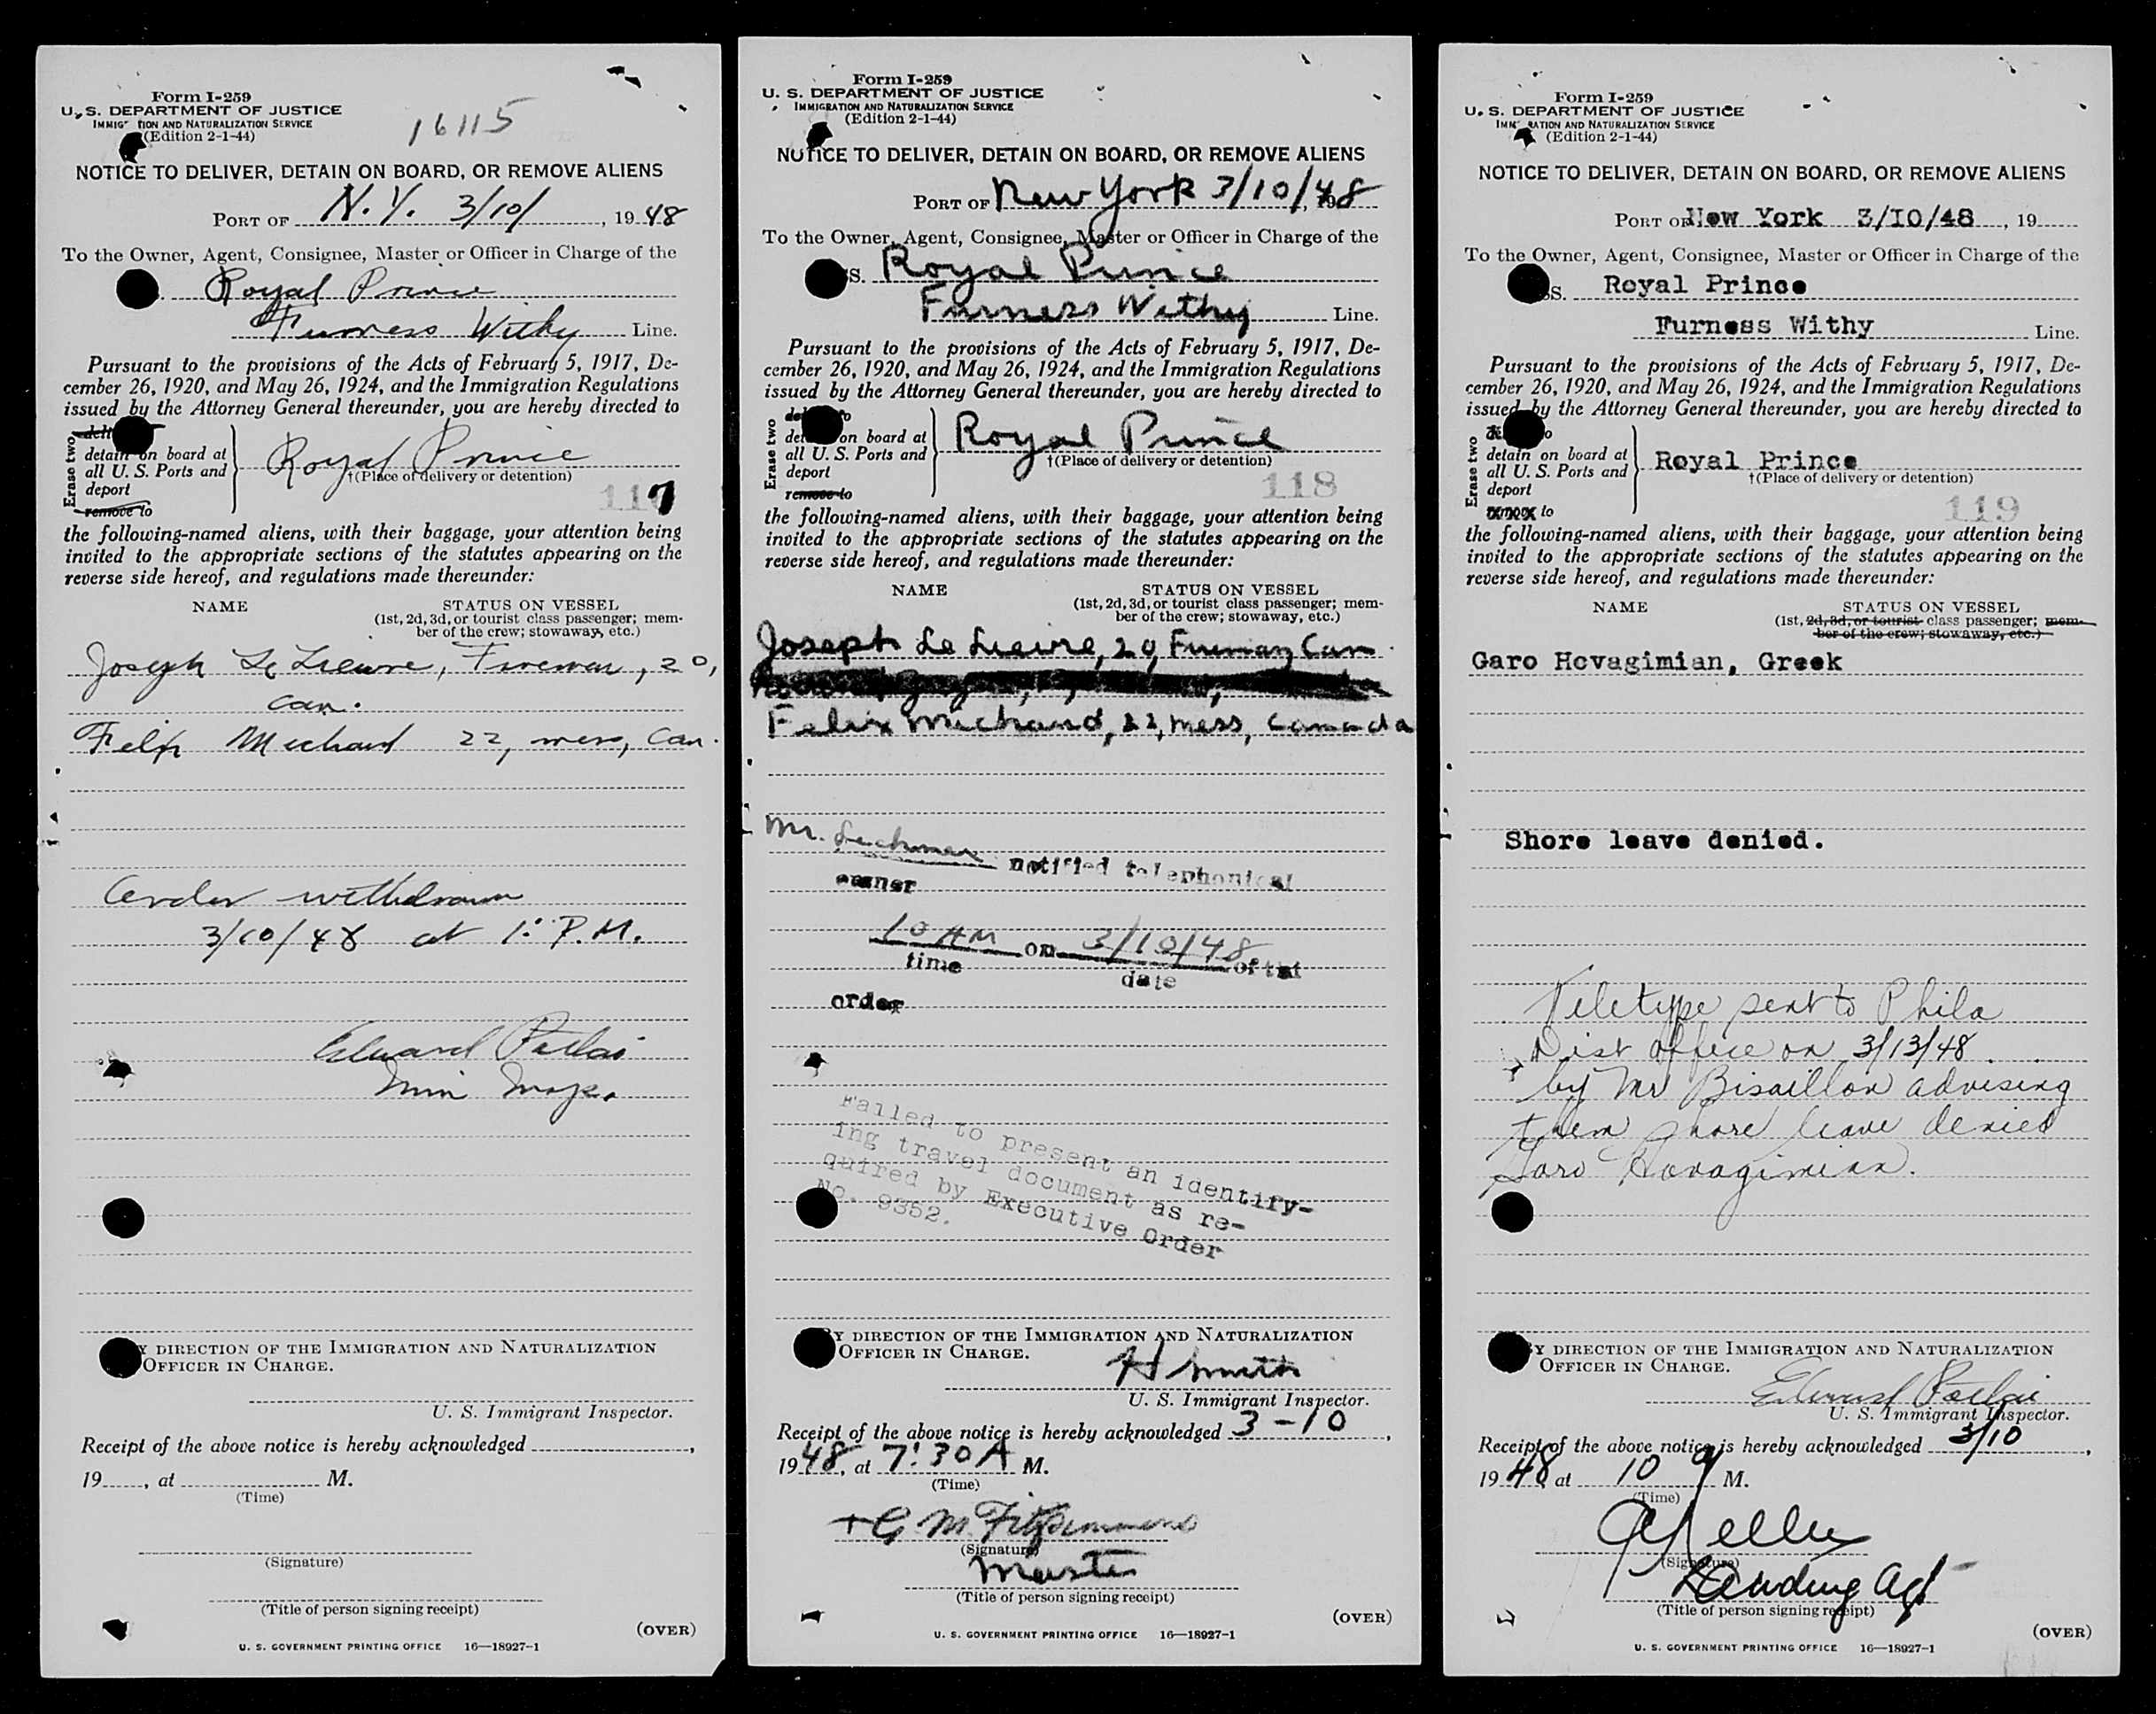 Form I-259
U. S. DEPARTMENT OF JUSTICE
IMMIG TION AND NATURALIZATION SERVICE
(Edition 2-1-44)
16115
NOTICE TO DELIVER, DETAIN ON BOARD, OR REMOVE ALIENS
PORT OF N. Y. 3/10/, 1948
To the Owner, Agent, Consignee, Master or Officer in Charge of the
Royal Prince
Furness Withy Line.
Pursuant to the provisions of the Acts of February 5, 1917, De-
cember 26, 1920, and May 26, 1924, and the Immigration Regulations
issued by the Attorney General thereunder, you are hereby directed to
Erase two
detain on board at
all U. S. Ports and
deport
remove to
Royal Prince
†(Place of delivery or detention)
117
the following-named aliens, with their baggage, your attention being
invited to the appropriate sections of the statutes appearing on the
reverse side hereof, and regulations made thereunder:
NAME STATUS ON VESSEL
(1st, 2d, 3d, or tourist class passenger; mem-
ber of the crew; stowaway, etc.)
Joseph Le Lievre, Fireman, 20,
Can.
Felix Michaud 22, mess, Can.
Order withdrawn
3/10/48 at 1: P.M.
Edward
BY DIRECTION OF THE IMMIGRATION AND NATURALIZATION
OFFICER IN CHARGE.
U. S. Immigrant Inspector.
Receipt of the above notice is hereby acknowledged
19 , at M.
(Time)
(Signature)
(Title of person signing receipt)
(OVER)
U. S. GOVERNMENT PRINTING OFFICE 16—18927-1
Form I-259
U. S. DEPARTMENT OF JUSTICE
IMMIGRATION AND NATURALIZATION SERVICE
(Edition 2-1-44)
NOTICE TO DELIVER, DETAIN ON BOARD, OR REMOVE ALIENS
PORT OF New York 3/10/48
To the Owner, Agent, Consignee, Master or Officer in Charge of the
S. Royal Prince
Furness Withy Line.
Pursuant to the provisions of the Acts of February 5, 1917, De-
cember 26, 1920, and May 26, 1924, and the Immigration Regulations
issued by the Attorney General thereunder, you are hereby directed to
Erase two
on board at
all U. S. Ports and
deport
remove to
Royal Prince
†(Place of delivery or detention)
118
the following-named aliens, with their baggage, your attention being
invited to the appropriate sections of the statutes appearing on the
reverse side hereof, and regulations made thereunder:
NAME STATUS ON VESSEL
(1st, 2d, 3d, or tourist class passenger; mem-
ber of the crew; stowaway, etc.)
Joseph Le Lievre, 20, Fireman, Can.
Felix Michaud, 22, mess, Canada
Mr. notified telephonical
owner
10 AM on 3/10/48 of tat
time date
order
Failed to present an identify-
ing travel document as re-
quired by Executive Order
No. 9352.
BY DIRECTION OF THE IMMIGRATION AND NATURALIZATION
OFFICER IN CHARGE.
H Smith
U. S. Immigrant Inspector.
Receipt of the above notice is hereby acknowledged 3-10,
1948, at 7:30 A M.
(Time)
G. M. Fitzsimmons
(Signature)
Master
(Title of person signing receipt)
(OVER)
U. S. GOVERNMENT PRINTING OFFICE 16—18927-1
Form I-259
U. S. DEPARTMENT OF JUSTICE
IMMIGRATION AND NATURALIZATION SERVICE
(Edition 2-1-44)
NOTICE TO DELIVER, DETAIN ON BOARD, OR REMOVE ALIENS
PORT OF New York 3/10/48, 19
To the Owner, Agent, Consignee, Master or Officer in Charge of the
SS. Royal Prince
Furness Withy Line.
Pursuant to the provisions of the Acts of February 5, 1917, De-
cember 26, 1920, and May 26, 1924, and the Immigration Regulations
issued by the Attorney General thereunder, you are hereby directed to
Erase two
detain on board at
all U. S. Ports and
deport
to
Royal Prince
†(Place of delivery or detention)
119
the following-named aliens, with their baggage, your attention being
invited to the appropriate sections of the statutes appearing on the
reverse side hereof, and regulations made thereunder:
NAME STATUS ON VESSEL
(1st, 2d, 3d, or tourist class passenger; mem-
ber of the crew; stowaway, etc.)
Garo Hovagimian, Greek
Shore leave denied.
Teletype sent to Phila
Dist Office on 3/13/48.
by Mr Bisaillon advising
them shore leave denied
Garo Hovagimian.
BY DIRECTION OF THE IMMIGRATION AND NATURALIZATION
OFFICER IN CHARGE.
Edward
U. S. Immigrant Inspector.
Receipt of the above notice is hereby acknowledged 3/10,
1948 at 10 a M.
(Time)
(Signature)
Landing Agt
(Title of person signing receipt)
(OVER)
U. S. GOVERNMENT PRINTING OFFICE 16—18927-1